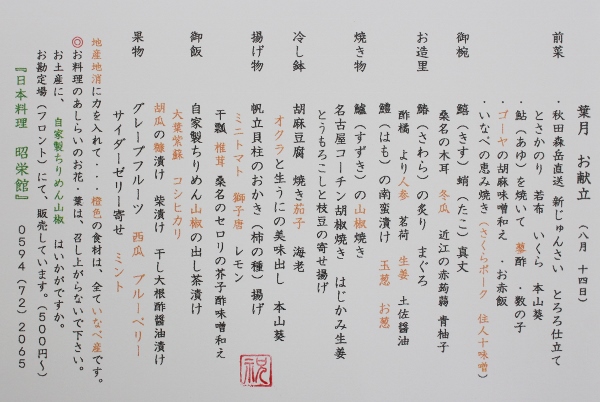 葉月　お献立　（八月　十四日）
前菜　・秋田森岳直送 新じゅんさい　とろろ仕立て
とさかのり　若布　いくら　本山葵
・鮎（あゆ）を焼いて　蓼酢　・数の子
・ゴーヤの胡麻味噌和え　・お赤飯
・いなべの恵み焼き（さくらポーク　住人十味噌）
御椀　鱚（きす）蛸（たこ）真丈
桑名の木耳　冬瓜　近江の赤蒟蒻　青柚子
お造里　鰆（さわら）の炙り　まぐろ
酢橘　より人参　茗荷　生姜　土佐醤油
鱧（はも）の南蛮漬け　玉葱　お葱
焼き物　鱸（すずき）の山椒焼き
名古屋コーチン胡椒焼き　はじかみ生姜
とうもろこしと枝豆の寄せ揚げ
冷し鉢　胡麻豆腐　焼き茄子　海老
オクラと生うにの美味出し　本山葵
揚げ物　帆立貝柱のおかき（柿の種）揚げ
ミニトマト　獅子唐　レモン
干瓢　椎茸　桑名のセロリの芥子酢味噌和え
御飯　自家製ちりめん山椒の出し茶漬け
大葉紫蘇　コシヒカリ
胡瓜の糠漬け　柴漬け　干し大根酢醤油漬け
果物　グレープフルーツ　西瓜　ブルーベリー
サイダーゼリー寄せ　ミント
地産地消に力を入れて・・橙色の食材は、全ていなべ産です。
◎お料理のあしらいのお花・葉は、召し上がらないで下さい。
お土産に、　自家製ちりめん山椒　はいかがですか。
お勘定場（フロント）にて、販売しています。（５００円～）
『日本料理　昭栄館』　０５９４（７２）２０６５
祝